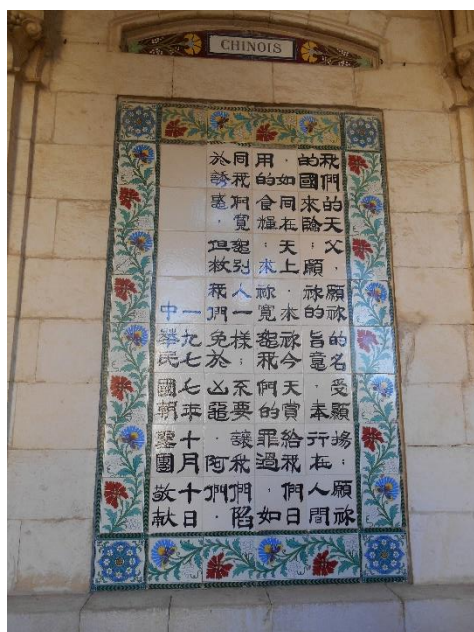 CHINOIS
我們的天父,願祢的名受顯揚;願祢
的國來臨;願祢的旨意,奉行在人間
,如同在天上.求祢今天賞給我們日
用的食糧;求祢寬免我們的罪過,如
同我們寬免別人一樣;不要讓我們陷
於誘惑.但救我們免於凶惡.阿們.
一九七七年十月十日
中華民國朝聖團敬献